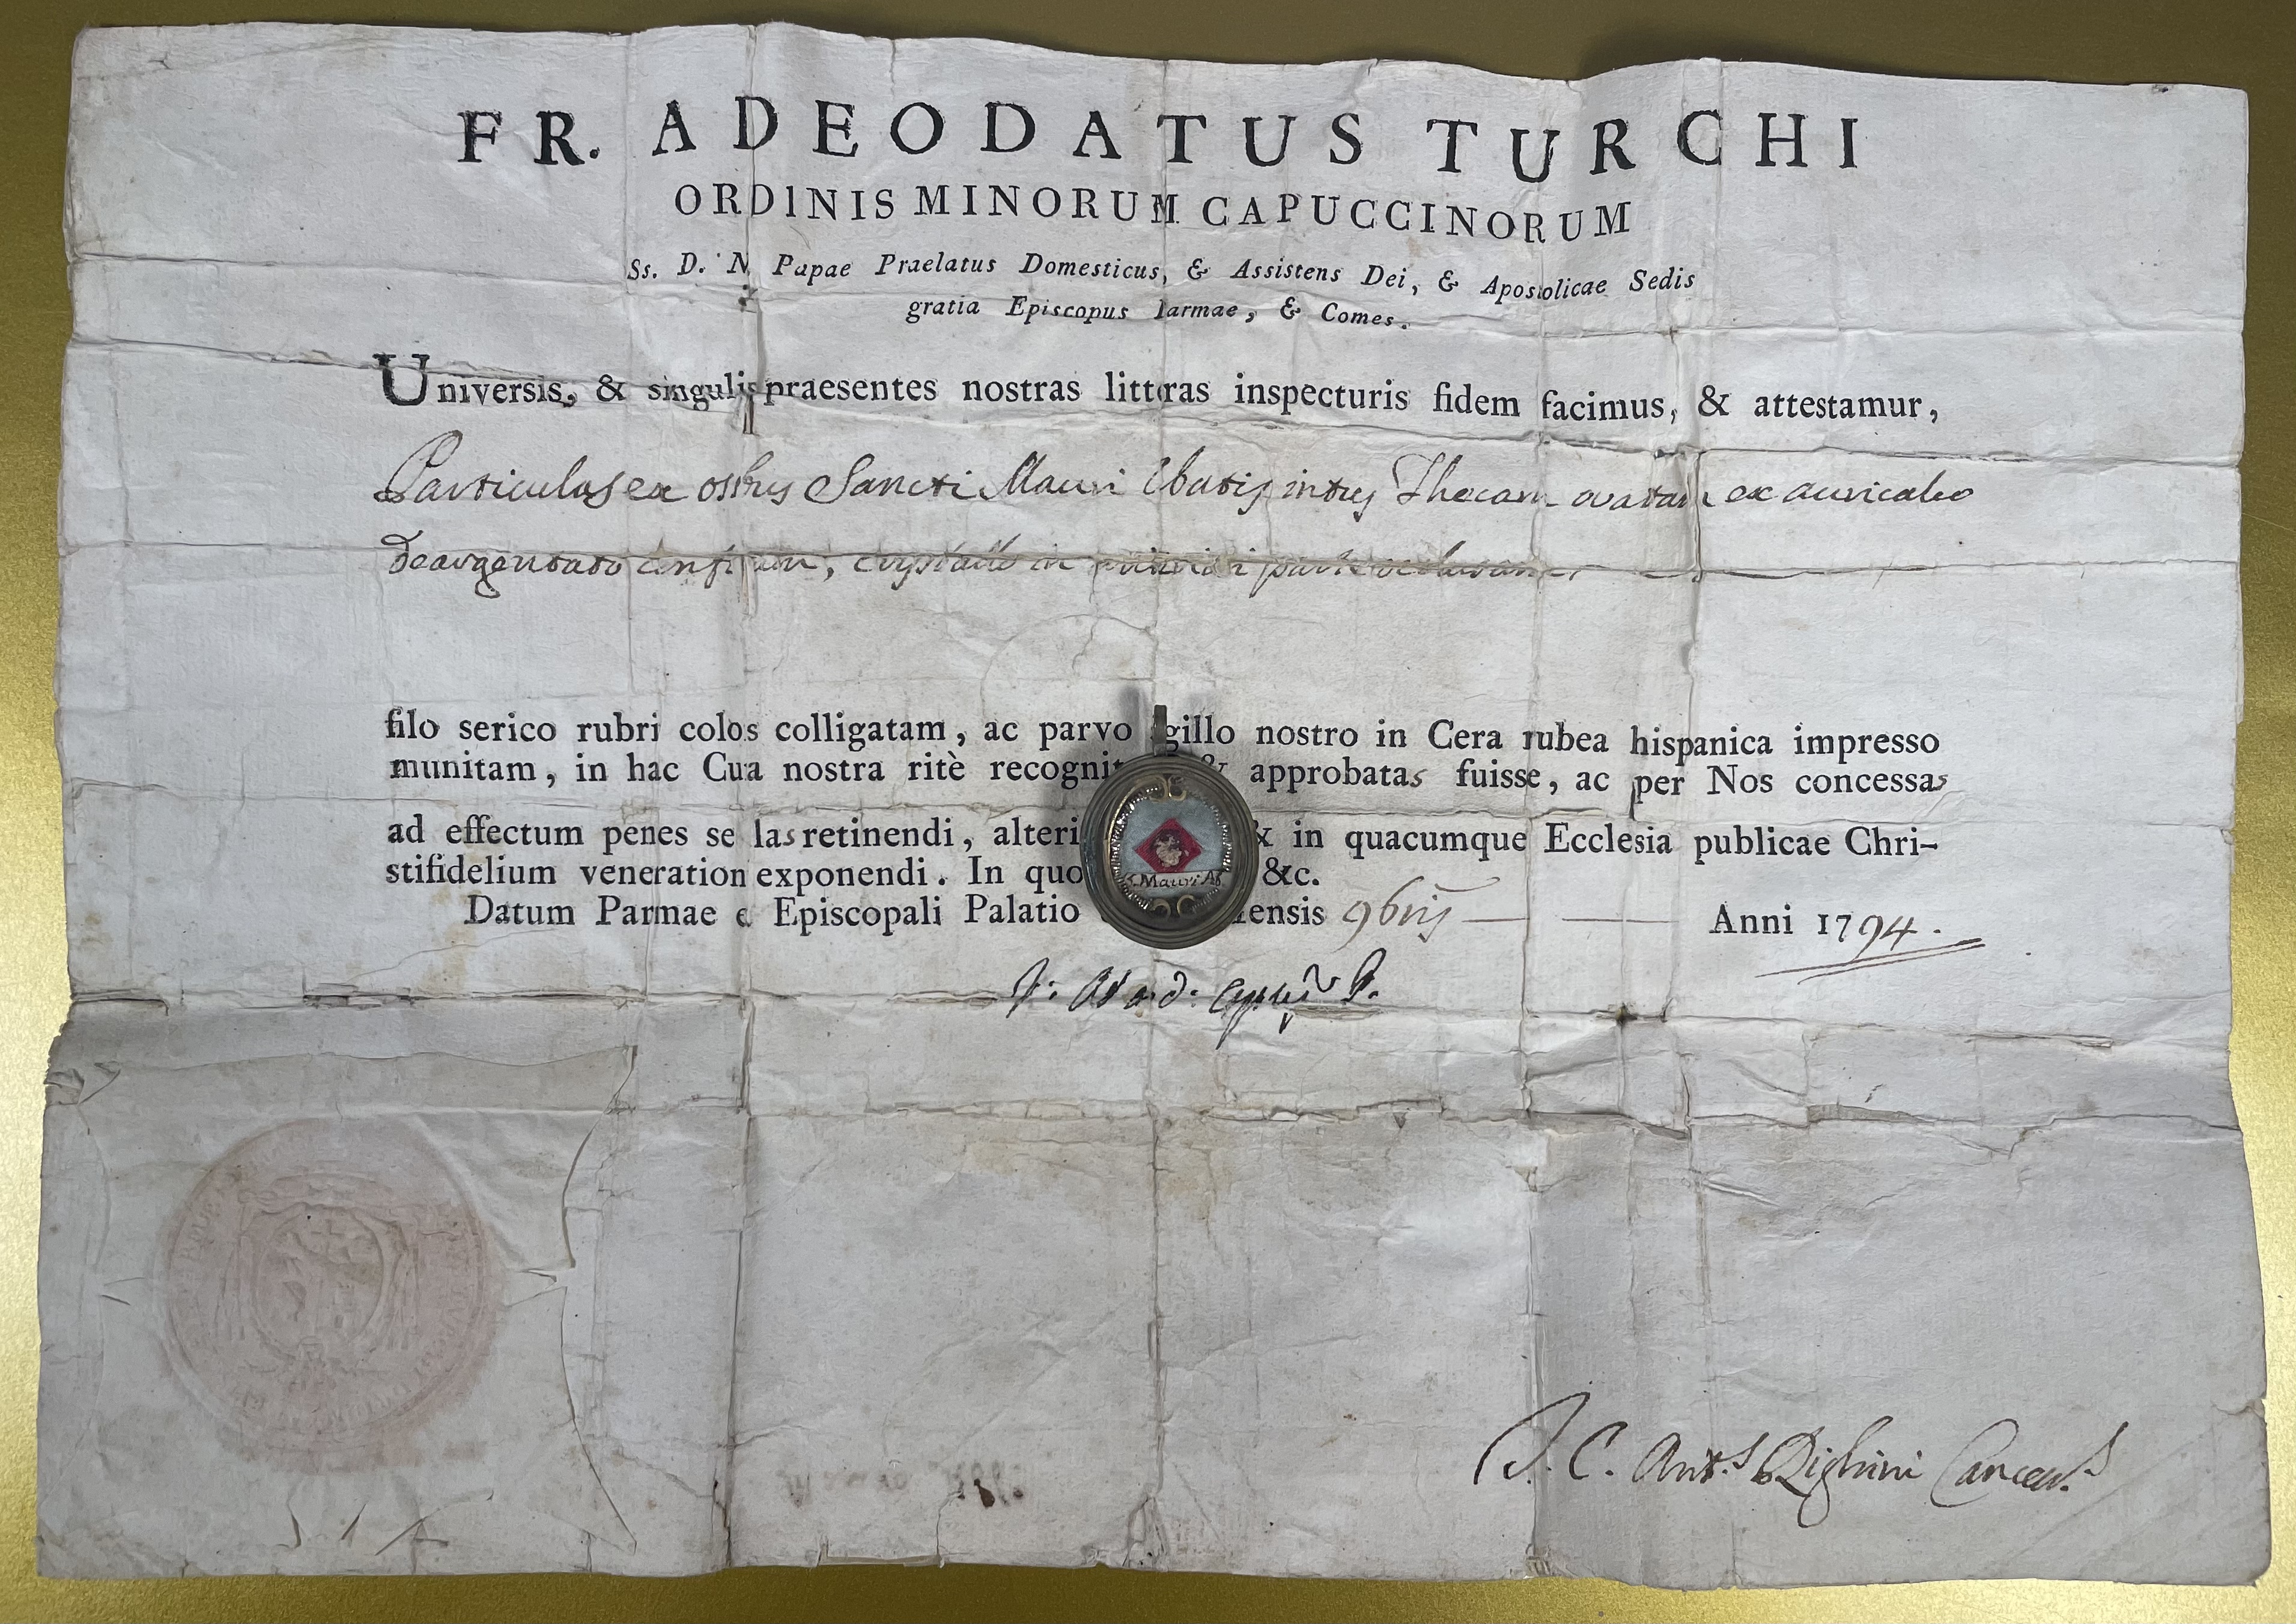 FR. ADEODATUS TURCHI
ORDINIS MINORUM CAPUCCINORUM
Ss. D. N Papae Praelatus Domesticus, & Assistens Dei, & Apostolicae Sedis
gratia Episcopus Parmae, & Comes.
Universis, & singulis praesentes nostras litteras inspecturis fidem facimus, & attestamur,
Particulas ex ossibus Sancti Mauri Abatis intus Thecam ovatam ex auricalco
deargentato confectam, crystallo in anteriori parte
filo serico rubri colos colligatam, ac parvo gillo nostro in Cera rubea hispanica impresso
munitam, in hac Cua nostra ritè recognit & approbatas fuisse, ac per Nos concessas
ad effectum penes se las retinendi, alteri & in quacumque Ecclesia publicae Chri-
stifidelium veneration exponendi. In quo &c.
S. Mauri Ab.
Datum Parmae e Episcopali Palatio ensis 9bris Anni 1794.
F. Adeod.
J. C. Ant.s Righini Cancell.s